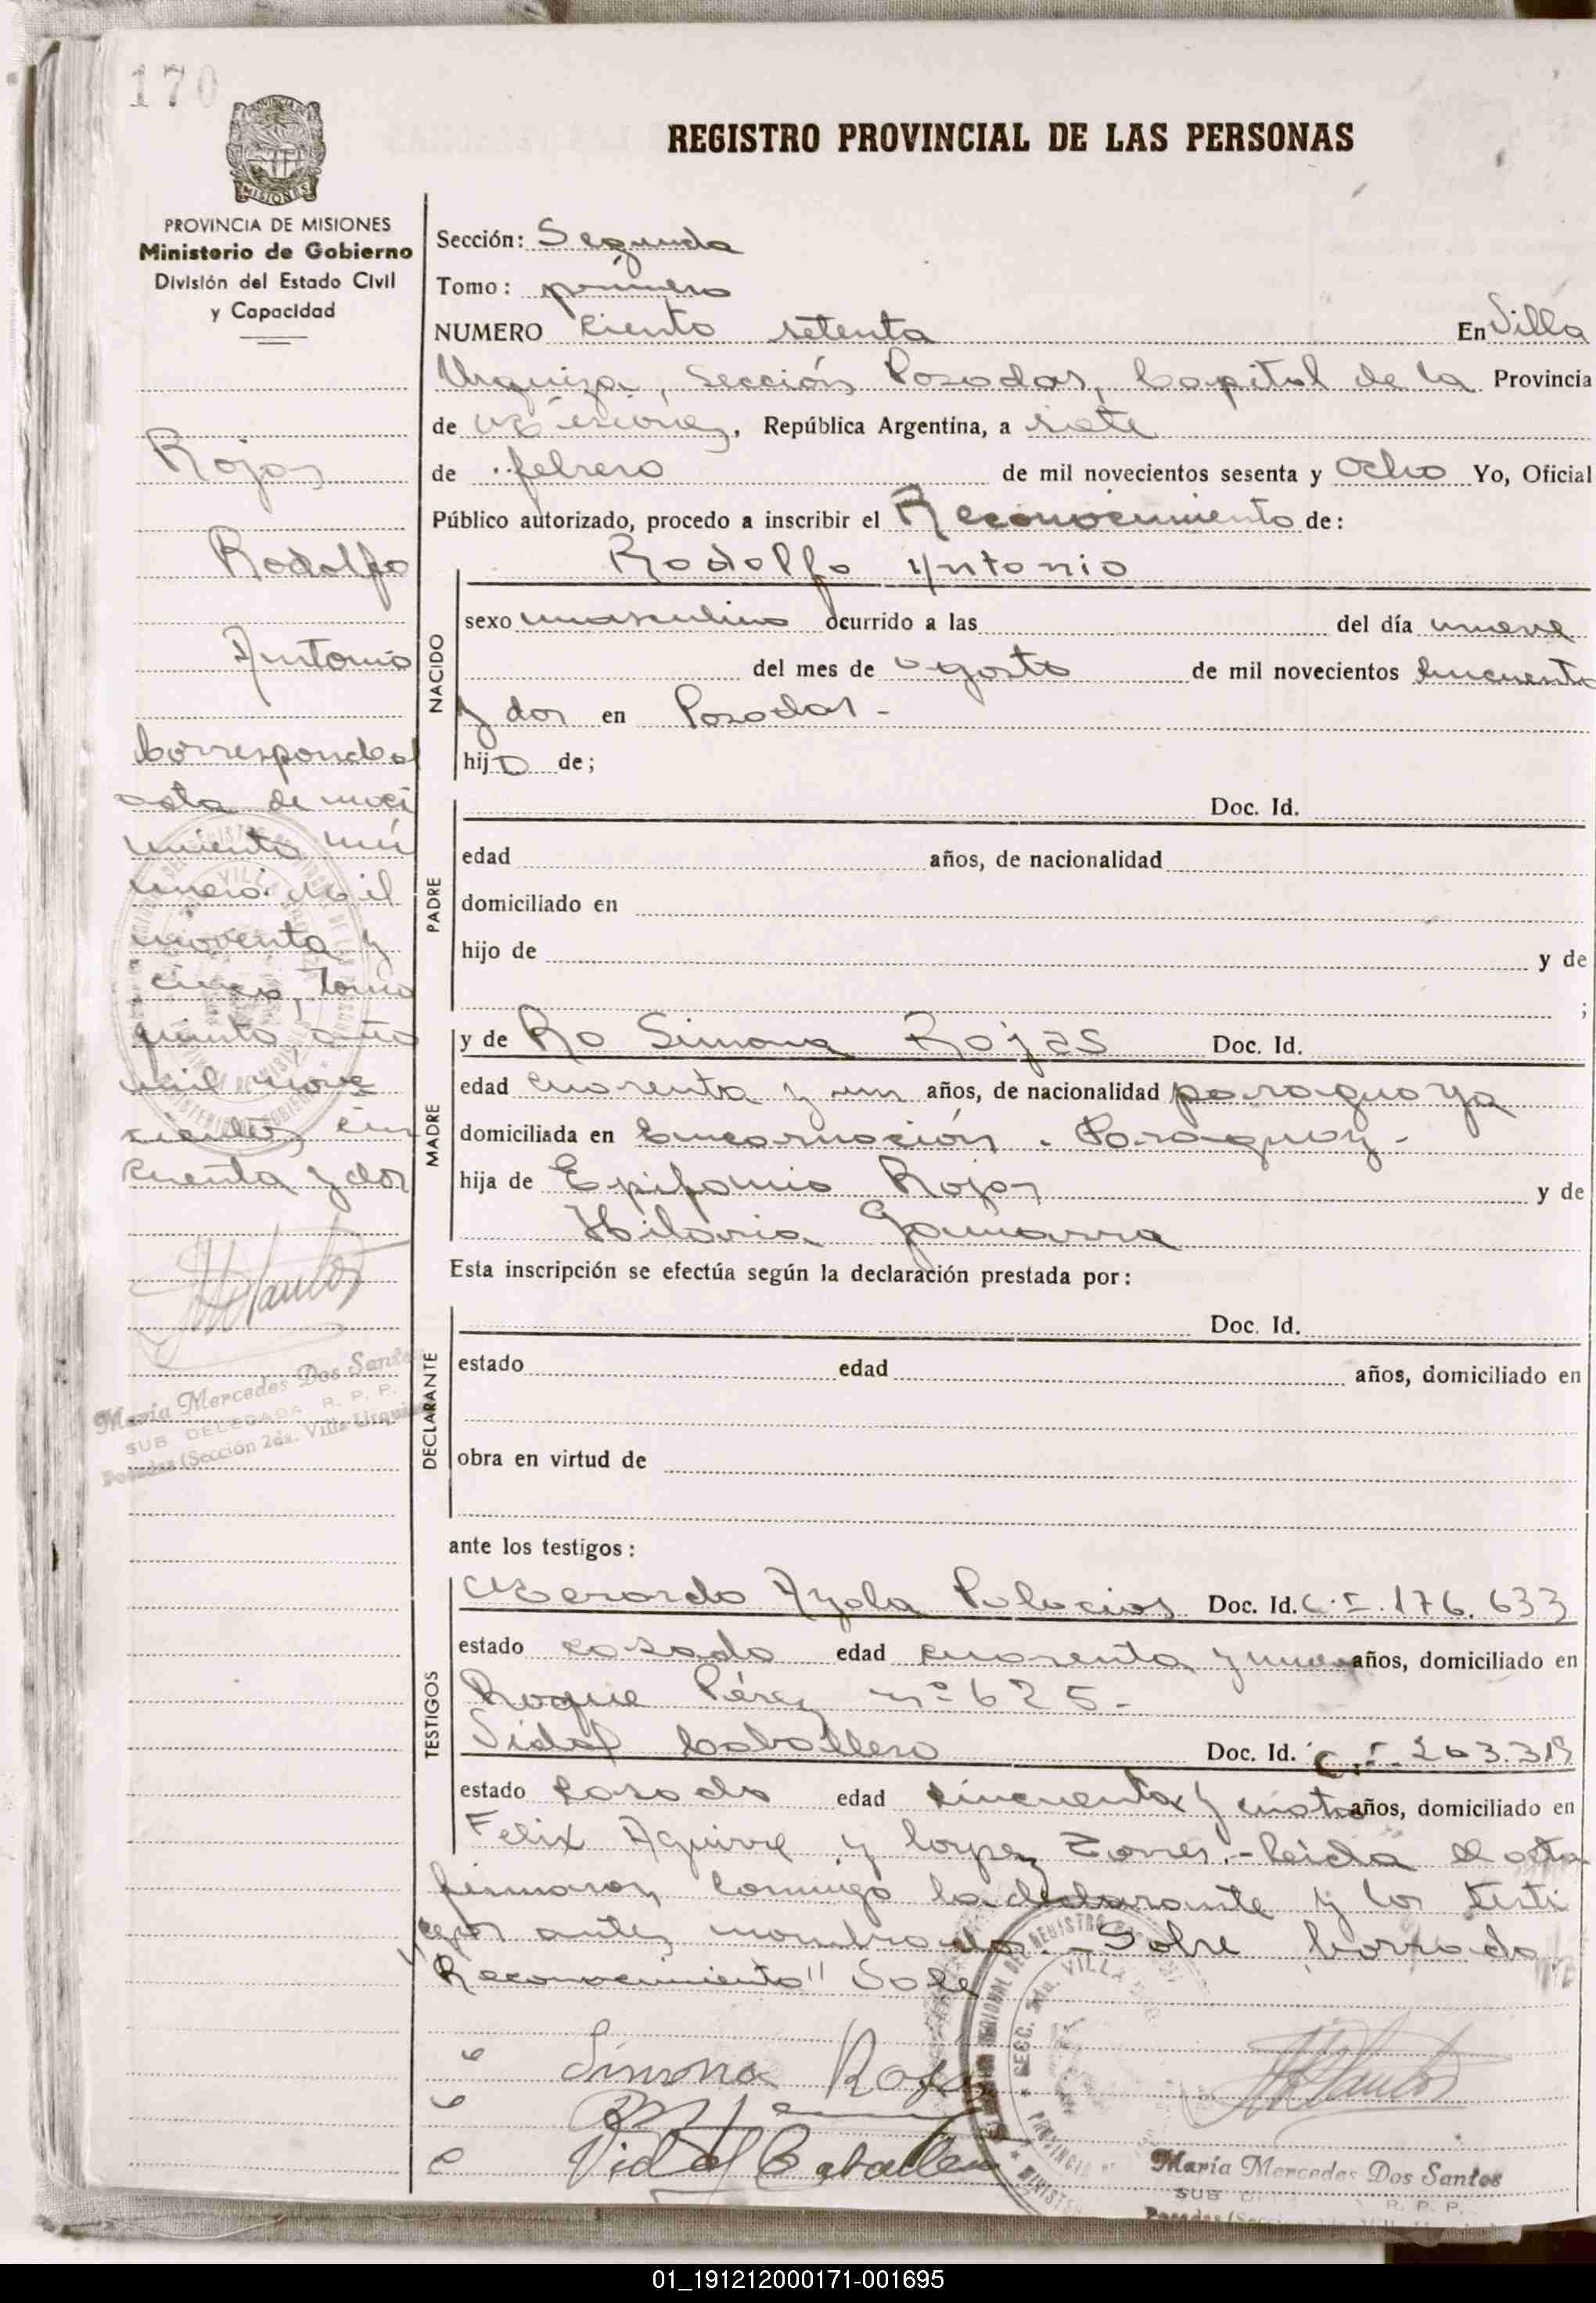 170
MISIONES
PROVINCIA DE MISIONES
Ministerio de Gobierno
División del Estado Civil
y Capacidad
Rojas
Rodolfo
Antonio
Corresponde al
acta de naci
miento nú
mero: Mil
noventa y
cinco, tomo
quinto año
mil nove
cientos cin
cuenta y dos
María Mercedes Dos Santos
SUB DELEGADA R. P. P.
Posadas (Sección 2da. Villa Urquiza
REGISTRO PROVINCIAL DE LAS PERSONAS
Sección: Segunda
Tomo: primero
NUMERO Ciento setenta En Villa
Urquiza, Sección Posadas, Capital de la Provincia
de Misiones, República Argentina, a siete
de febrero de mil novecientos sesenta y Ocho Yo, Oficial
Público autorizado, procedo a inscribir el Reconocimiento de:
Rodolfo Antonio
NACIDO
sexo masculino ocurrido a las del día nueve
del mes de agosto de mil novecientos cincuenta
y dos en Posadas -
hijo de;
PADRE
Doc. Id.
edad años, de nacionalidad
domiciliado en
hijo de y de
;
MADRE
y de Simona Rojas Doc. Id.
edad cuarenta y un años, de nacionalidad paraguaya
domiciliada en Encarnación - Paraguay -
hija de Epifanio Rojas y de
Hilaria Gamarra
Esta inscripción se efectúa según la declaración prestada por:
DECLARANTE
Doc. Id.
estado edad años, domiciliado en
obra en virtud de
ante los testigos:
TESTIGOS
Ayala Palacios Doc. Id. C.I. 176.633
estado casado edad cuarenta y años, domiciliado en
Roque Pérez nº 625 -
Vidal Caballero Doc. Id. C.I. 263.319
estado casado edad cincuenta y cuatro años, domiciliado en
Felix Aguirre y Torres.- Leída el acta
firmaron conmigo la declarante y los testi
gos antes nombrados.- Sobre borrado
"Reconocimiento" Vale
Simona Rojas
Vidal Caballero
María Mercedes Dos Santos
SUB R. P. P.
01_191212000171-001695